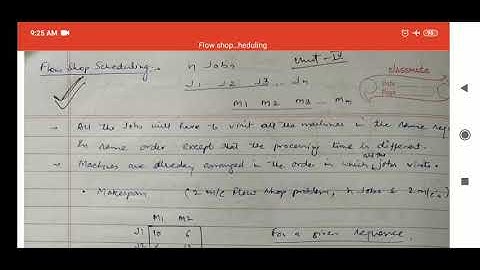 9:25 AM
98
Flow shop...heduling
Flow Shop Scheduling
n Jobs
Unit-IV
classmate
Date
Page
J1 J2 J3 ... Jn
M1 M2 M3 ... Mm
→ All the Jobs will have to visit all the machines in the same
In same order except that the processing time is different.
→ Machines are already arranged in the order in which all the jobs visits.
• Makespan (2 m/c Flow Shop problem, n Jobs & 2 m/c's)
M1 M2
J1 10 6
For a given sequence
J2